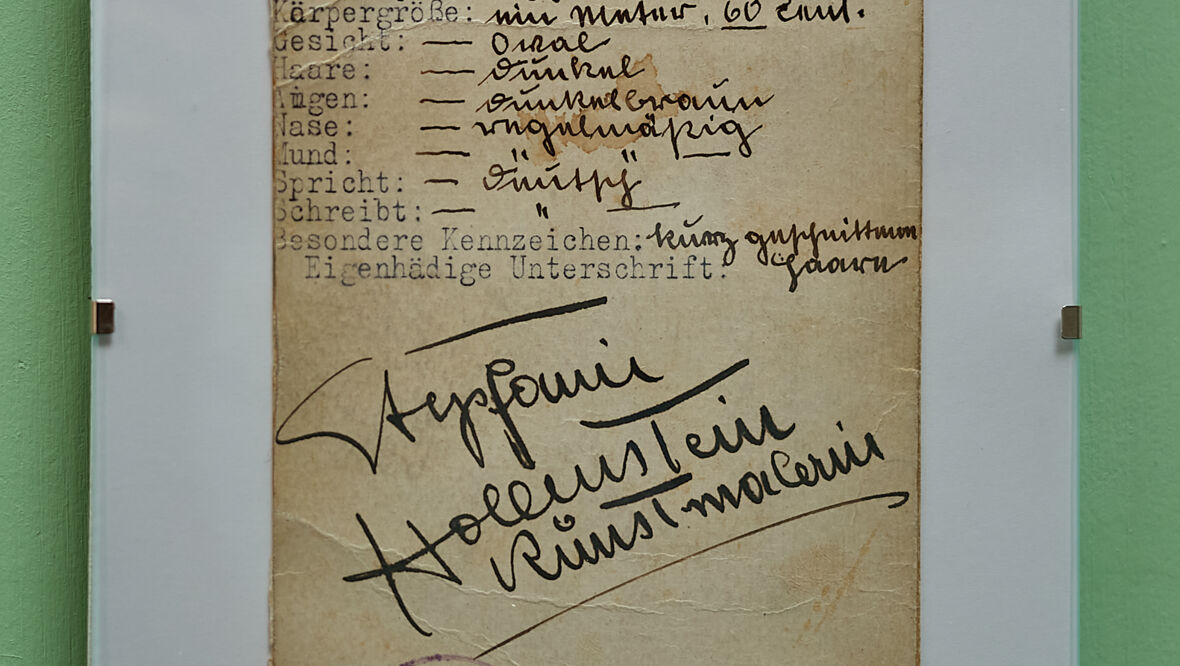 Körpergröße: ein Meter, 60 Cent.
Gesicht: — Oval
Haare: — dunkel
Augen: — dunkelbraun
Nase: — regelmäßig
Mund: — " "
Spricht: — deutsch
Schreibt: — "
Besondere Kennzeichen: kurz geschnittene
Haare
Eigenhädige Unterschrift:
Stephanie
Hollenstein
Kunstmalerin